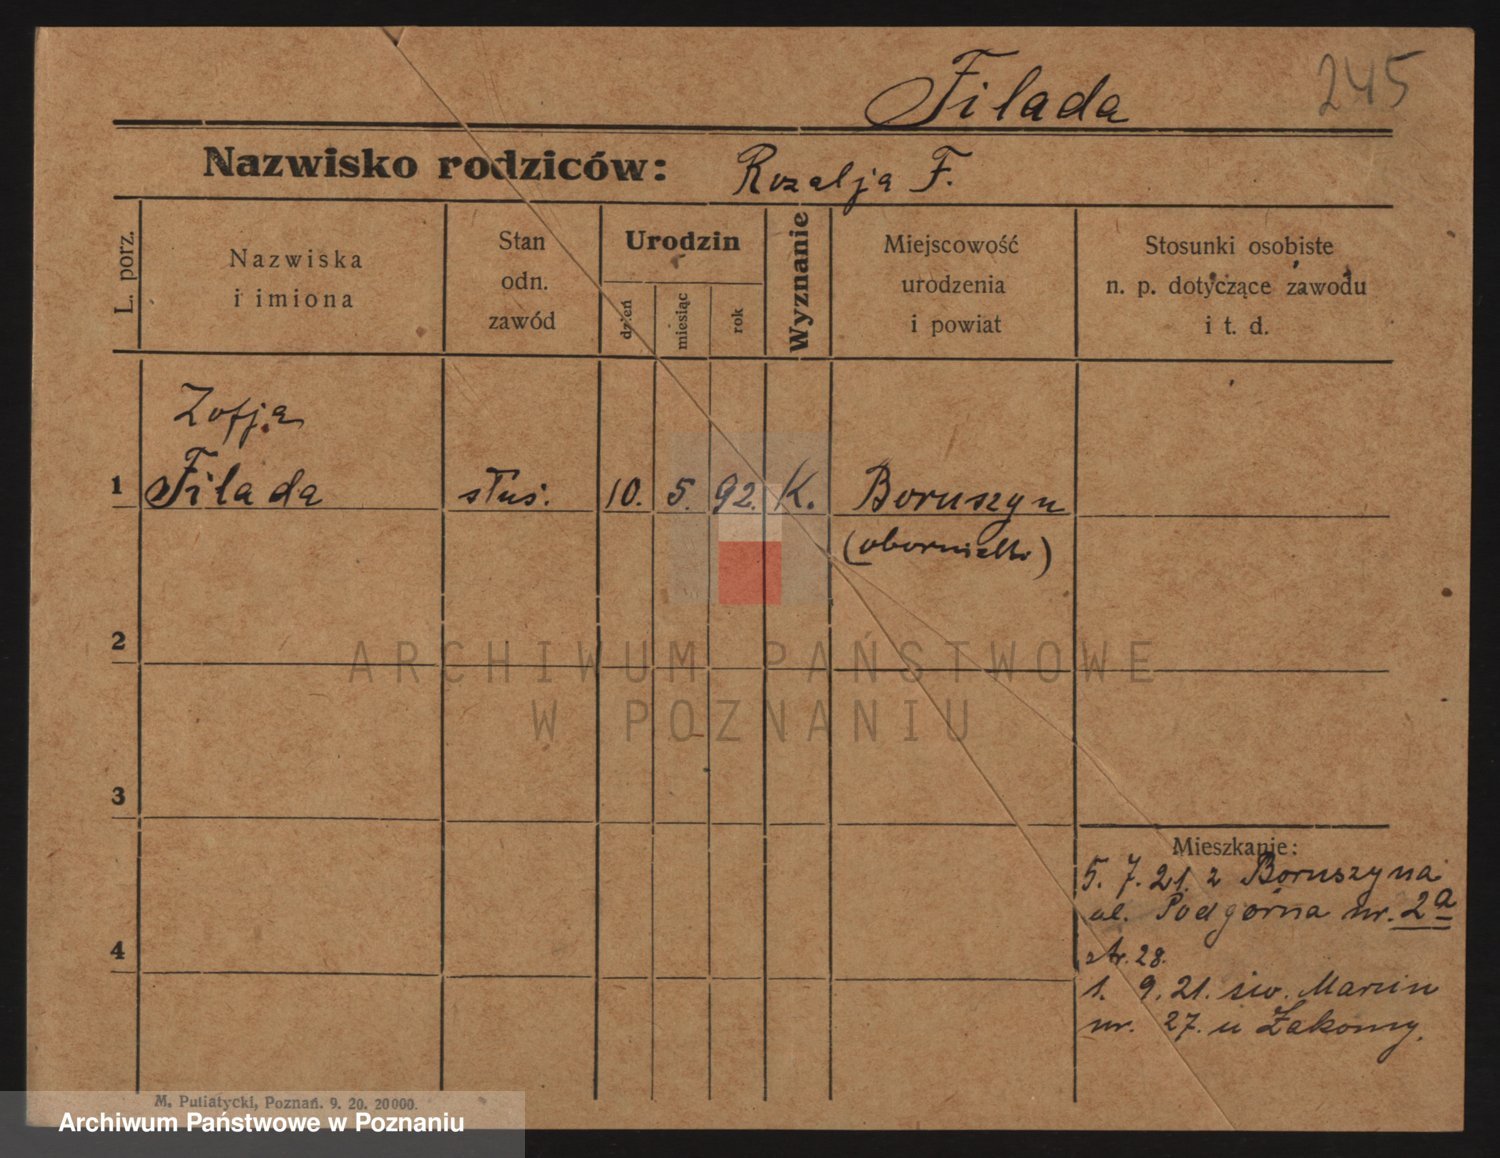 Filada
245
Nazwisko rodziców: Rozalja F.
L. porz.
Nazwiska
i imiona
Stan
odn.
zawód
Urodzin
dzień
miesiąc
rok
Wyznanie
Miejscowość
urodzenia
i powiat
Stosunki osobiste
n. p. dotyczące zawodu
i t. d.
Zofja
1 Filada służ. 10. 5. 92. K. Boruszyn
(obornickie)
2
ARCHIWUM PAŃSTWOWE
W POZNANIU
3
Mieszkanie:
5. 7. 21. z Boruszyna
ul. Podgórna nr. 2a
4
str. 28.
1. 9. 21. św. Marcin
nr. 27. u
M. Putiatycki, Poznań. 9. 20. 20000.
Archiwum Państwowe w Poznaniu